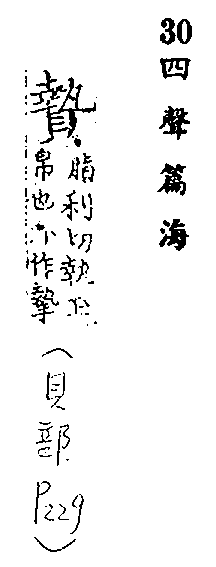 30四聲篇海
贄
脂利切執玉
帛也亦作摯
(貝部 P229)